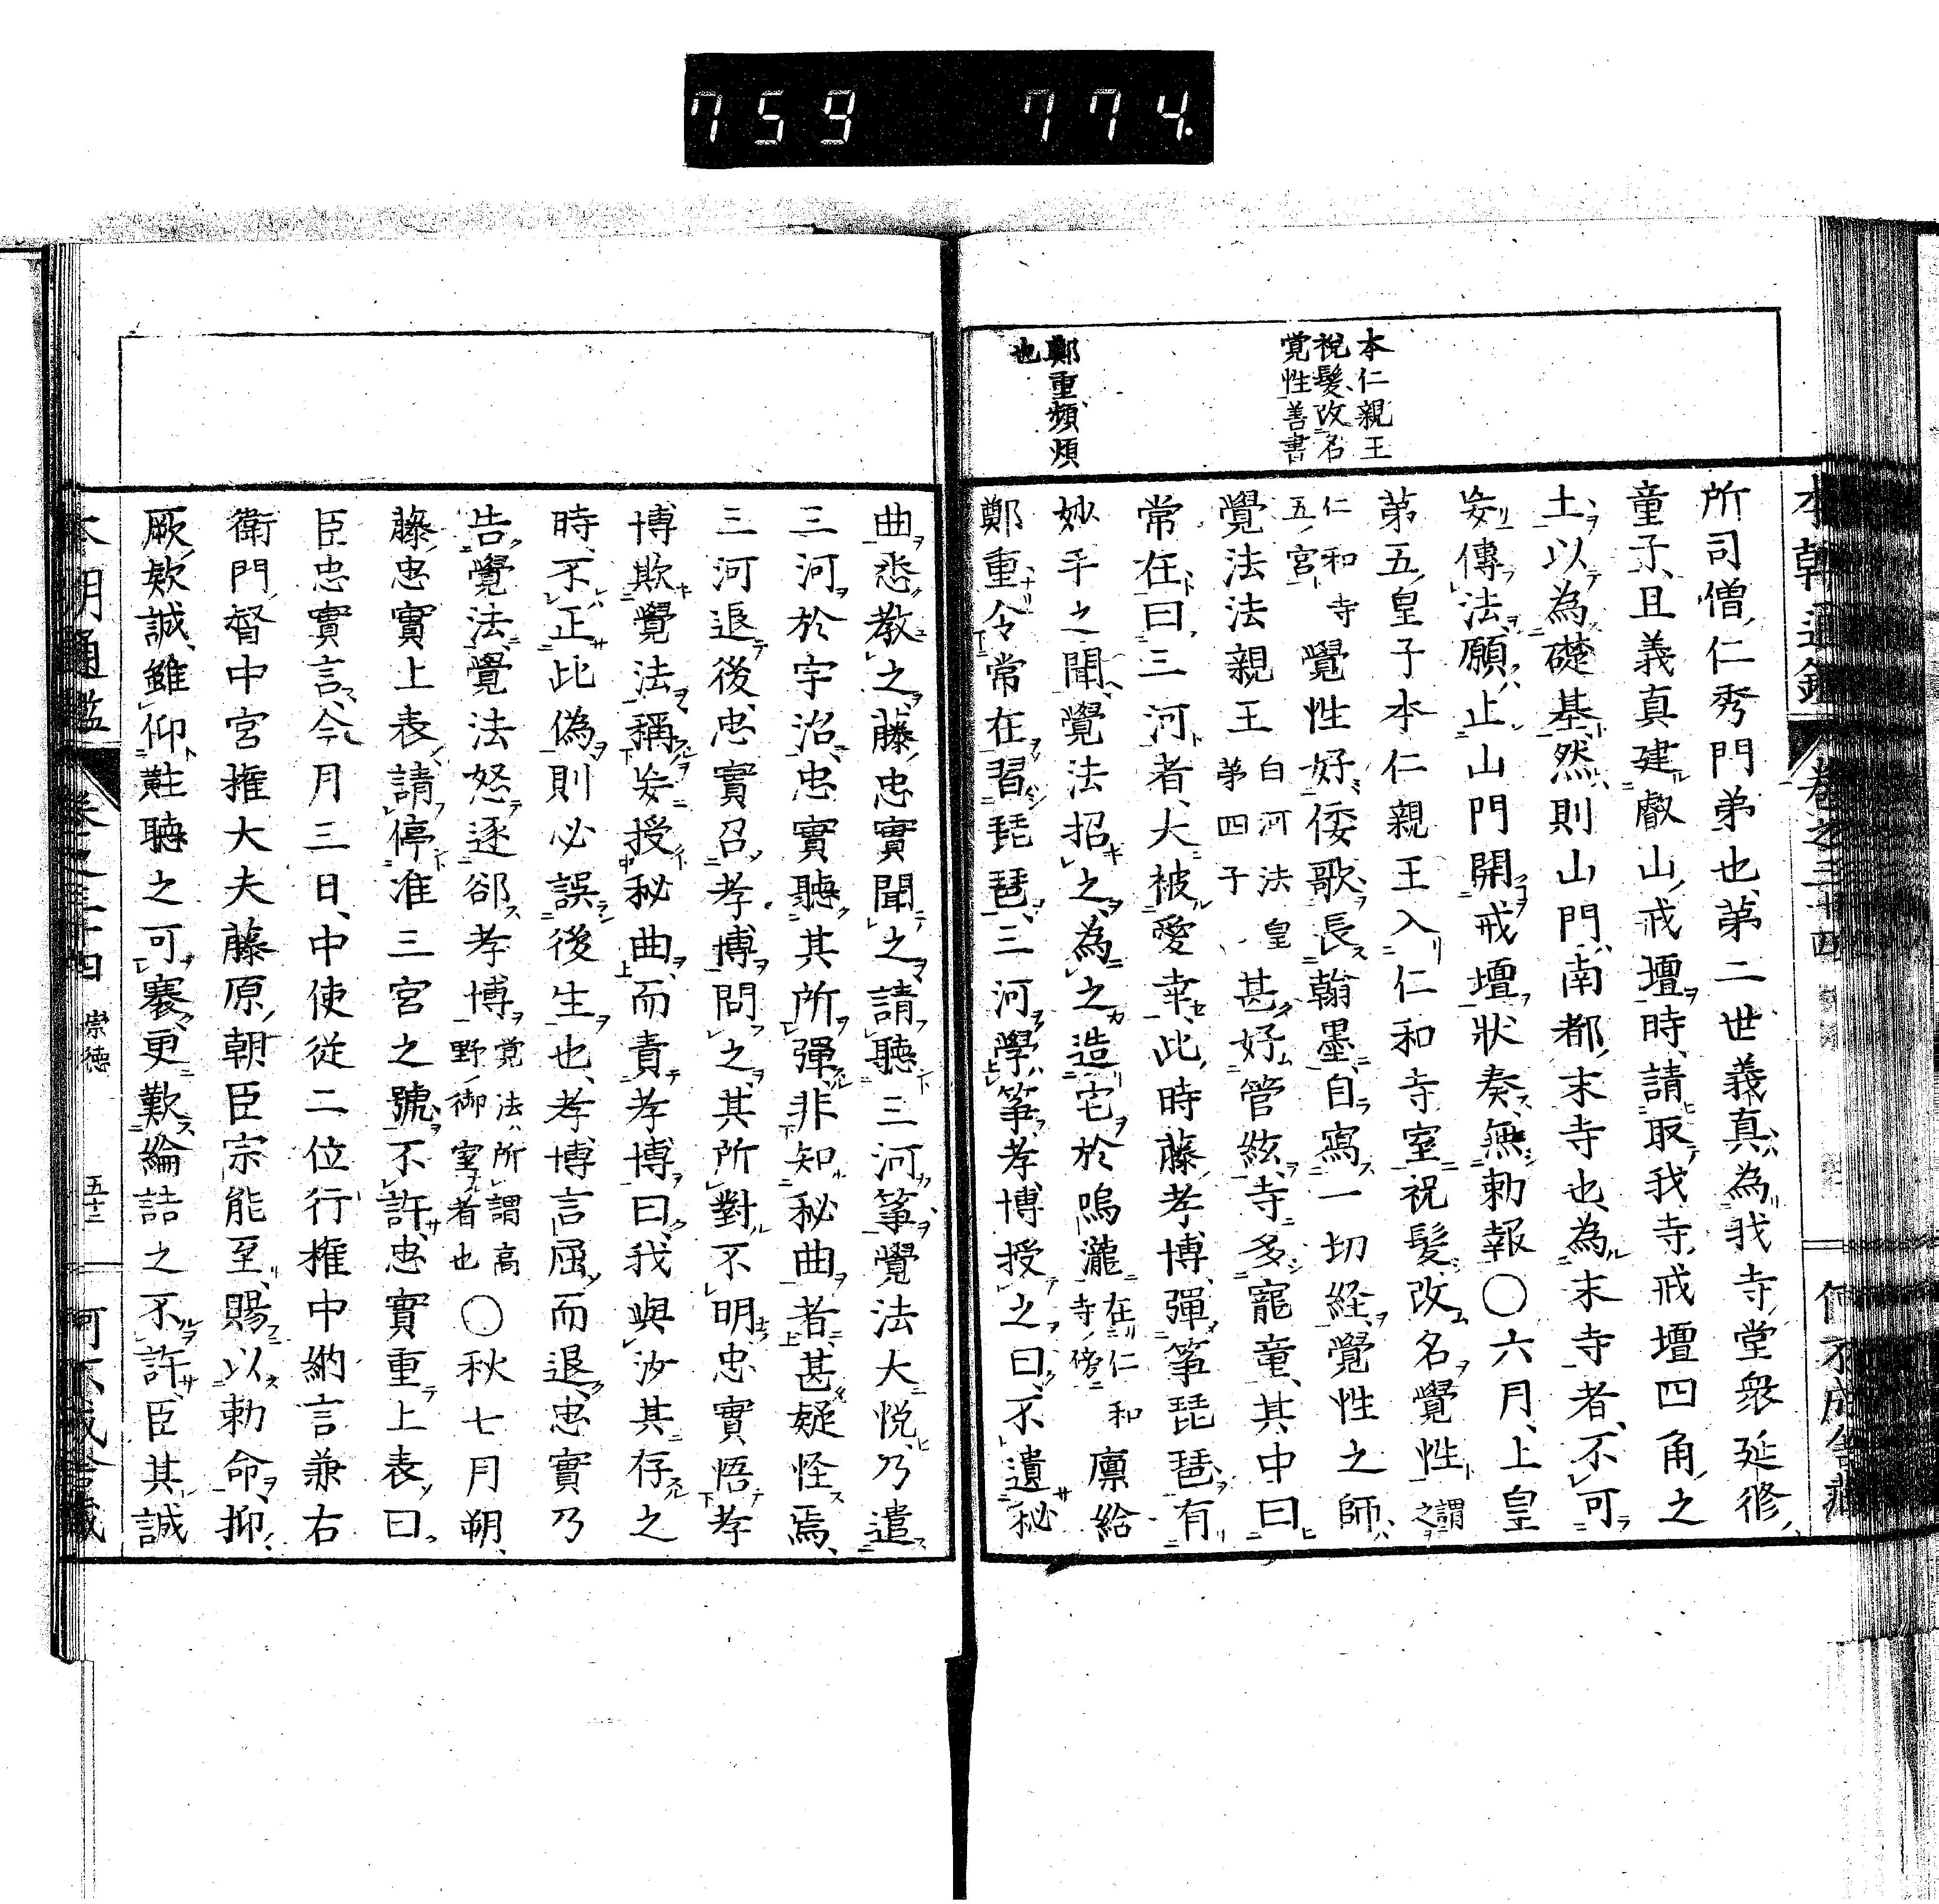 759 774.
本仁親王
祝髮改名
覚性善書
鄭重頻煩
也
所司僧仁秀門弟也第二世義真為我寺堂衆延修
童子且義真建叡山戒壇時請取我寺戒壇四角之
土以為礎基然則山門南都末寺也為末寺者不可
妄傳法願止山門開戒壇狀奏無勅報〇六月上皇
第五皇子本仁親王入仁和寺室祝髮改名覺性謂之
仁和寺五宮覺性好倭歌長翰墨自寫一切経覺性之師
覺法法親王白河法皇第四子甚好管絃寺多寵童其中曰
常在曰三河者大被愛幸此時藤孝博彈箏琵琶有
妙手之聞覺法招之為之造宅於嗚瀧在仁和寺傍廩給
鄭重令常在習琵琶三河學箏孝博授之曰不遺秘
曲悉教之藤忠實聞之請聽三河箏覺法大悦乃遣
三河於宇治忠實聽其所彈非知秘曲者甚疑怪焉
三河退後忠實召孝博問之其所對不明忠實悟孝
博欺覺法稱妄授秘曲而責孝博曰我與汝其存之
時不正比偽則必誤後生也孝博言屈而退忠實乃
告覺法覺法怒逐郤孝博覚法所謂高野御室者也〇秋七月朔
藤忠實上表請停准三宮之號不許忠實重上表曰
臣忠實言今月三日中使從二位行権中納言兼右
衛門督中宮権大夫藤原朝臣宗能至賜以勅命抑
厥欵誠雖仰黈聴之可褰更歎綸誥之不許臣其誠
本朝通鑑 卷之三十四 崇徳 五十三